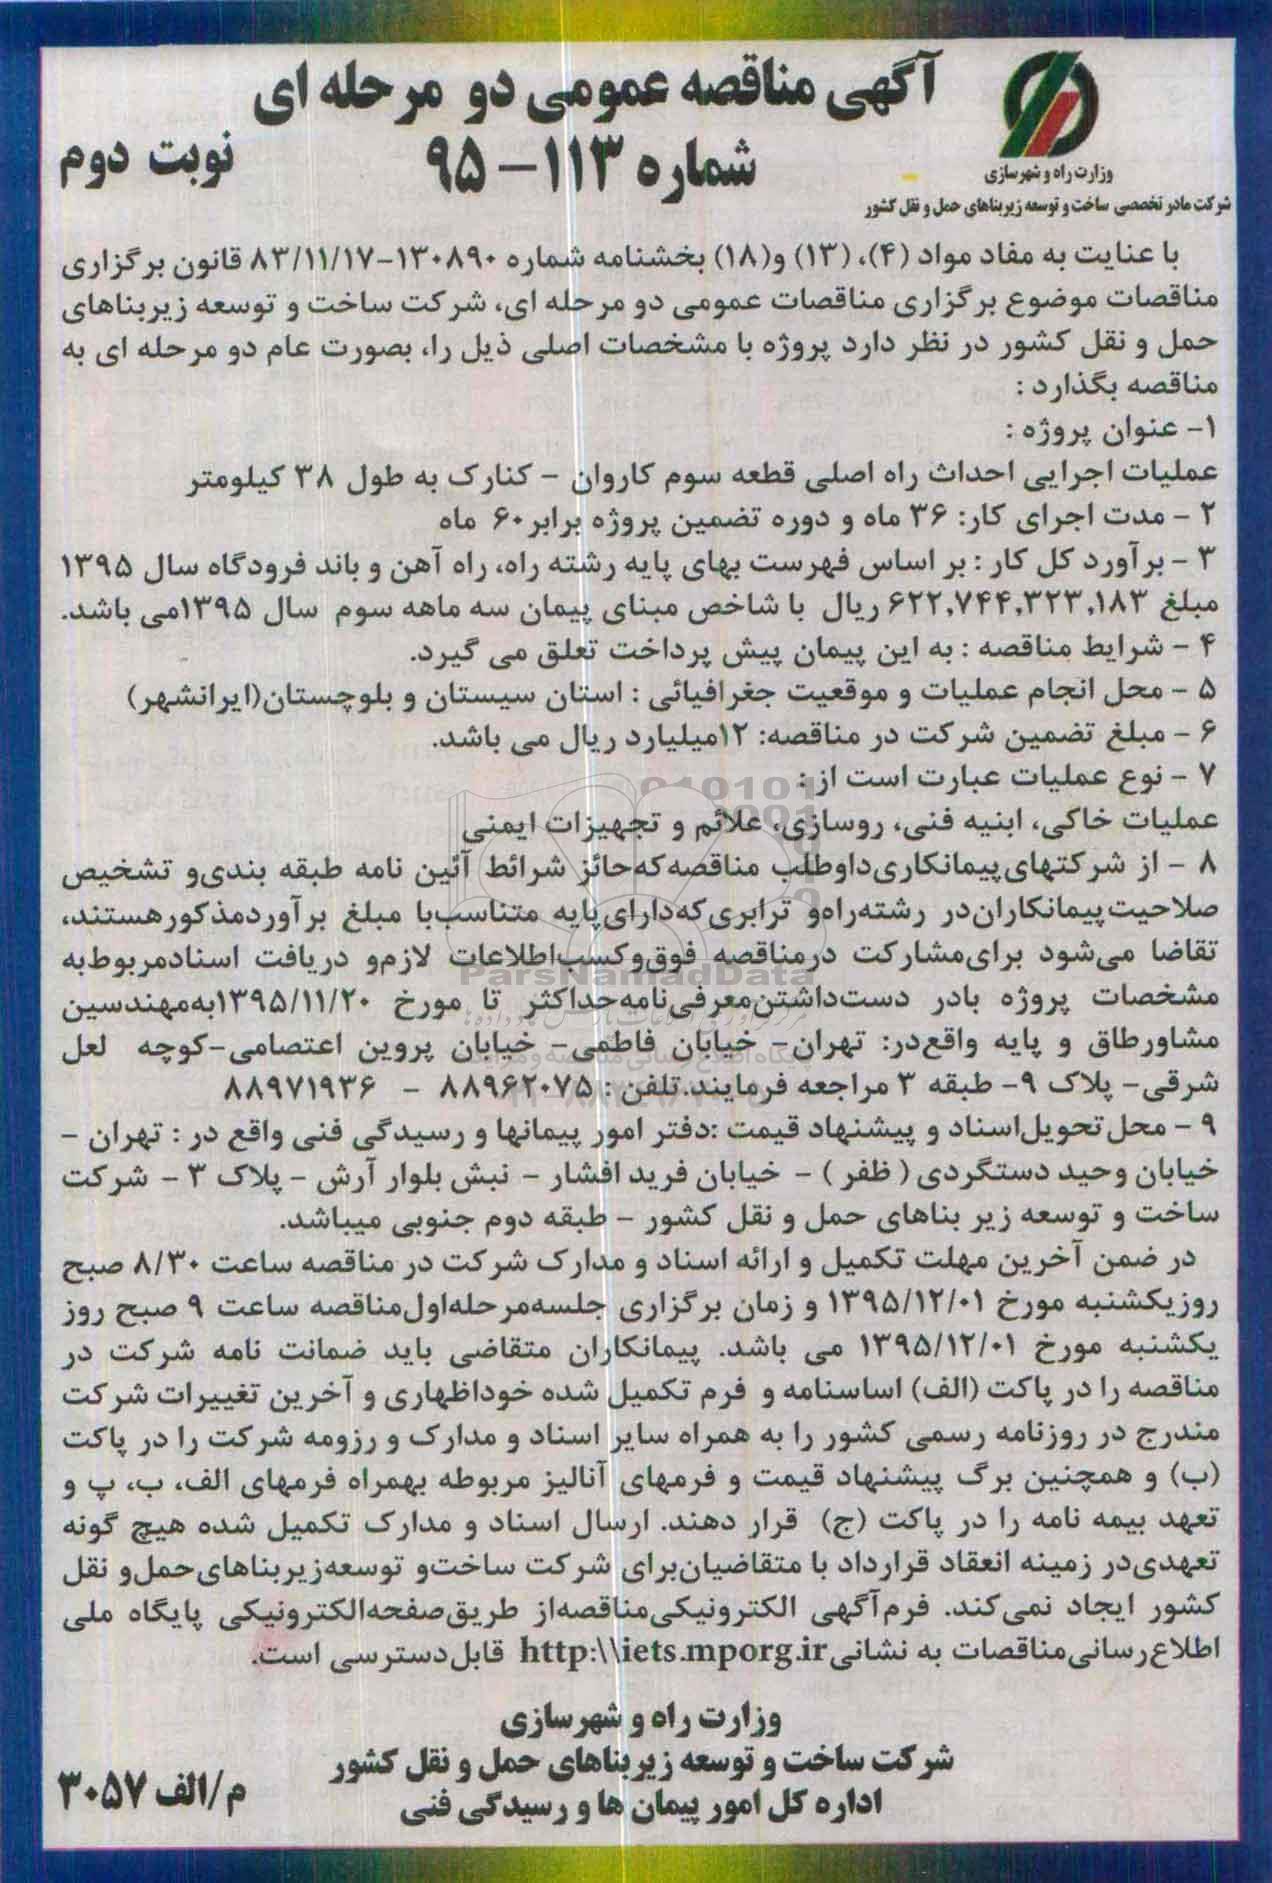 آگهی مناقصه عمومی دو مرحله ای
شماره ۱۱۳-۹۵
نوبت دوم
وزارت راه و شهرسازی
شرکت مادر تخصصی ساخت و توسعه زیربناهای حمل و نقل کشور
با عنایت به مفاد مواد (۴)، (۱۳) و(۱۸) بخشنامه شماره ۱۳۰۸۹۰-۸۳/۱۱/۱۷ قانون برگزاری
مناقصات موضوع برگزاری مناقصات عمومی دو مرحله ای، شرکت ساخت و توسعه زیربناهای
حمل و نقل کشور در نظر دارد پروژه با مشخصات اصلی ذیل را، بصورت عام دو مرحله ای به
مناقصه بگذارد :
۱- عنوان پروژه :
عملیات اجرایی احداث راه اصلی قطعه سوم کاروان - کنارک به طول ۳۸ کیلومتر
۲ - مدت اجرای کار: ۳۶ ماه و دوره تضمین پروژه برابر۶۰ ماه
۳ - برآورد کل کار : بر اساس فهرست بهای پایه رشته راه، راه آهن و باند فرودگاه سال ۱۳۹۵
مبلغ ۶۲۲,۷۴۴,۳۲۳,۱۸۳ ریال با شاخص مبنای پیمان سه ماهه سوم سال ۱۳۹۵می باشد.
۴ - شرایط مناقصه : به این پیمان پیش پرداخت تعلق می گیرد.
۵ - محل انجام عملیات و موقعیت جغرافیائی : استان سیستان و بلوچستان(ایرانشهر)
۶ - مبلغ تضمین شرکت در مناقصه: ۱۲میلیارد ریال می باشد.
۷ - نوع عملیات عبارت است از :
عملیات خاکی، ابنیه فنی، روسازی، علائم و تجهیزات ایمنی
۸ - از شرکتهای پیمانکاری داوطلب مناقصه که حائز شرائط آئین نامه طبقه بندی و تشخیص
صلاحیت پیمانکاران در رشته راه و ترابری که دارای پایه متناسب با مبلغ برآورد مذکور هستند،
تقاضا می شود برای مشارکت در مناقصه فوق و کسب اطلاعات لازم و دریافت اسناد مربوط به
مشخصات پروژه با در دست داشتن معرفی نامه حداکثر تا مورخ ۱۳۹۵/۱۱/۲۰ به مهندسین
مشاور طاق و پایه واقع در: تهران- خیابان فاطمی- خیابان پروین اعتصامی-کوچه لعل
شرقی- پلاک ۹- طبقه ۳ مراجعه فرمایند. تلفن : ۸۸۹۶۲۰۷۵ - ۸۸۹۷۱۹۳۶
۹ - محل تحویل اسناد و پیشنهاد قیمت :دفتر امور پیمانها و رسیدگی فنی واقع در : تهران -
خیابان وحید دستگردی ( ظفر ) - خیابان فرید افشار - نبش بلوار آرش - پلاک ۳ - شرکت
ساخت و توسعه زیر بناهای حمل و نقل کشور - طبقه دوم جنوبی میباشد.
در ضمن آخرین مهلت تکمیل و ارائه اسناد و مدارک شرکت در مناقصه ساعت ۸/۳۰ صبح
روز یکشنبه مورخ ۱۳۹۵/۱۲/۰۱ و زمان برگزاری جلسه مرحله اول مناقصه ساعت ۹ صبح روز
یکشنبه مورخ ۱۳۹۵/۱۲/۰۱ می باشد. پیمانکاران متقاضی باید ضمانت نامه شرکت در
مناقصه را در پاکت (الف) اساسنامه و فرم تکمیل شده خوداظهاری و آخرین تغییرات شرکت
مندرج در روزنامه رسمی کشور را به همراه سایر اسناد و مدارک و رزومه شرکت را در پاکت
(ب) و همچنین برگ پیشنهاد قیمت و فرمهای آنالیز مربوطه بهمراه فرمهای الف، ب، پ و
تعهد بیمه نامه را در پاکت (ج) قرار دهند. ارسال اسناد و مدارک تکمیل شده هیچ گونه
تعهدی در زمینه انعقاد قرارداد با متقاضیان برای شرکت ساخت و توسعه زیربناهای حمل و نقل
کشور ایجاد نمی کند. فرم آگهی الکترونیکی مناقصه از طریق صفحه الکترونیکی پایگاه ملی
اطلاع رسانی مناقصات به نشانی http:\\iets.mporg.ir قابل دسترسی است.
وزارت راه و شهرسازی
شرکت ساخت و توسعه زیربناهای حمل و نقل کشور
اداره کل امور پیمان ها و رسیدگی فنی
م/الف ۳۰۵۷
ParsNamadData